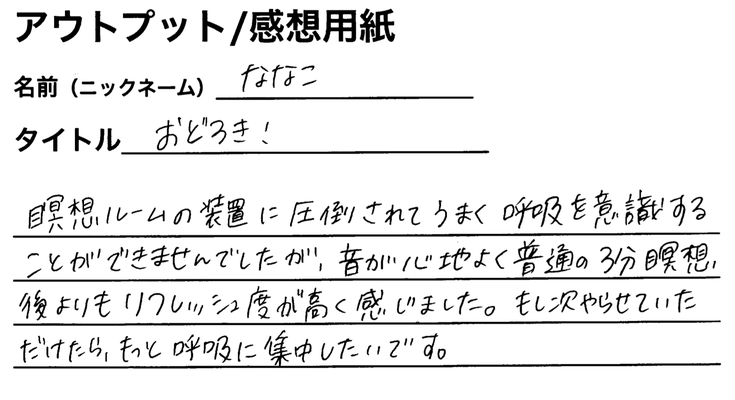 アウトプット/感想用紙
名前（ニックネーム） ななこ
タイトル おどろき！
瞑想ルームの装置に圧倒されてうまく呼吸を意識する
ことができませんでしたが、音が心地よく普通の3分瞑想
後よりもリフレッシュ度が高く感じました。もし次やらせていた
だけたら、もっと呼吸に集中したいです。